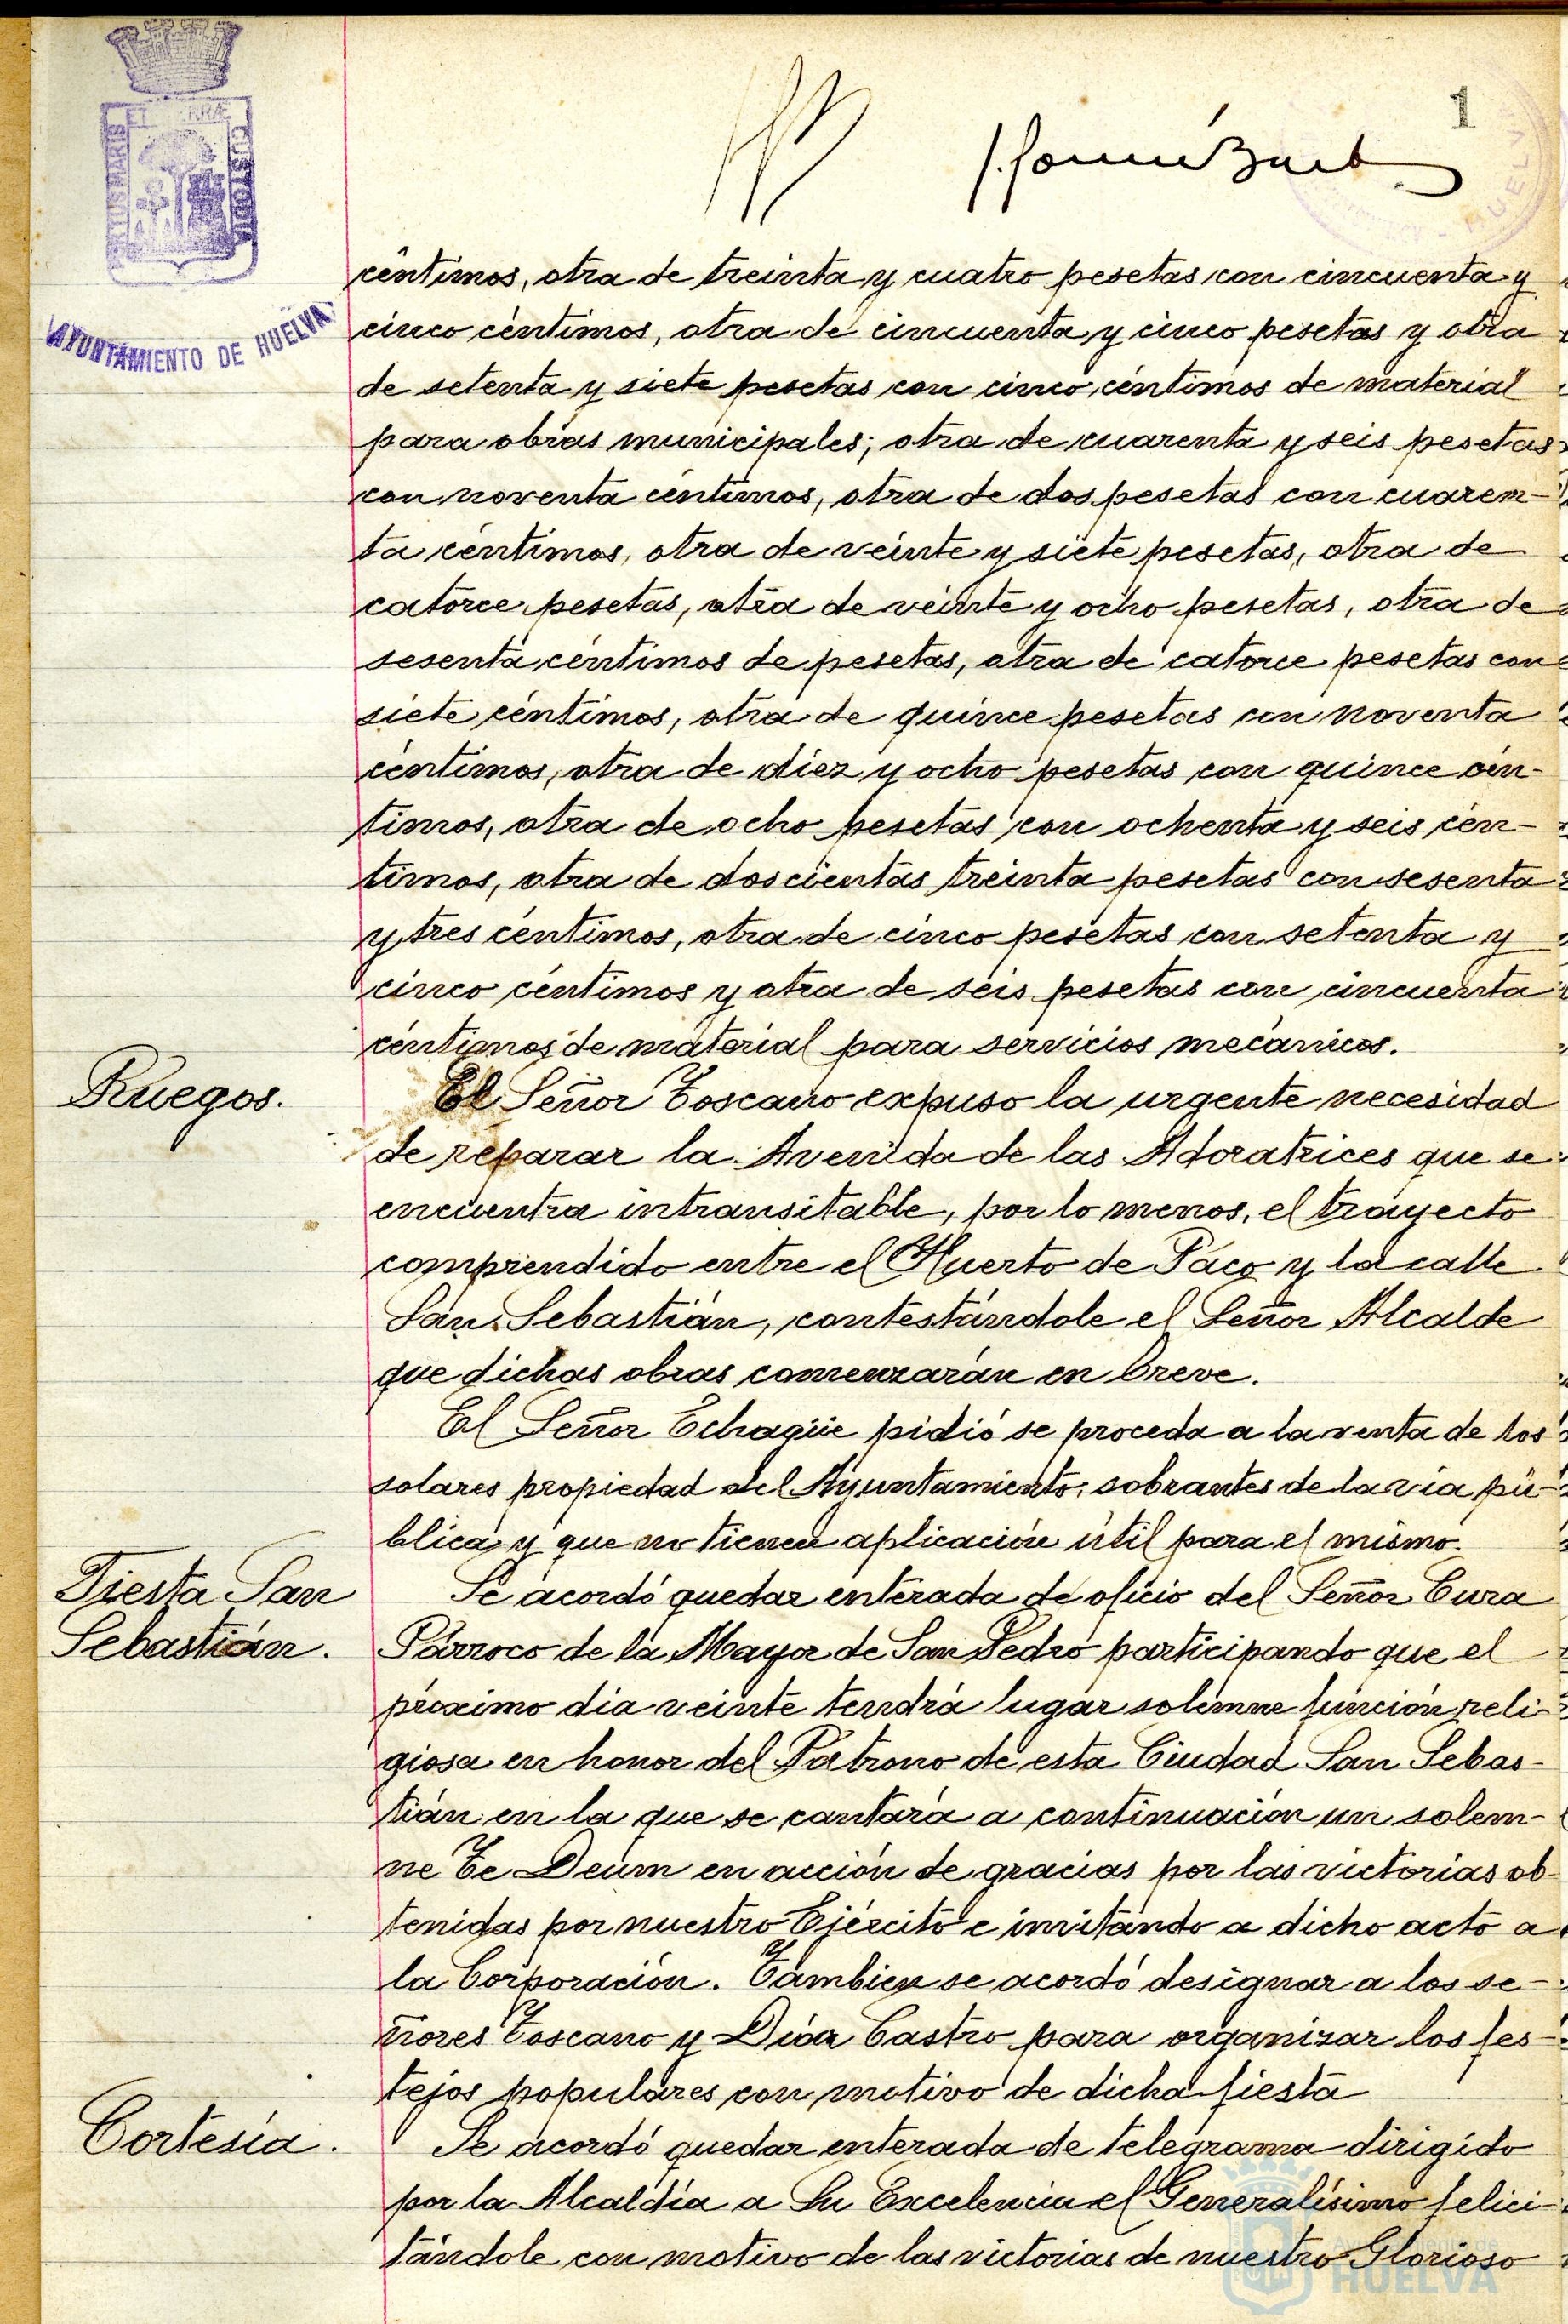 1
AYUNTAMIENTO DE HUELVA
céntimos, otra de treinta y cuatro pesetas con cincuenta y
cinco céntimos, otra de cincuenta y cinco pesetas y otra
de setenta y siete pesetas con cinco céntimos de material
para obras municipales; otra de cuarenta y seis pesetas
con noventa céntimos, otra de dos pesetas con cuaren-
ta céntimos, otra de veinte y siete pesetas, otra de
catorce pesetas, otra de veinte y ocho pesetas, otra de
sesenta céntimos de pesetas, otra de catorce pesetas con
siete céntimos, otra de quince pesetas con noventa
céntimos, otra de diez y ocho pesetas con quince cén-
timos, otra de ocho pesetas con ochenta y seis cén-
timos, otra de doscientas treinta pesetas con sesenta
y tres céntimos, otra de cinco pesetas con setenta y
cinco céntimos y otra de seis pesetas con cincuenta
céntimos de material para servicios mecánicos.
Ruegos.
El Señor Toscano expuso la urgente necesidad
de reparar la Avenida de las Adoratrices que se
encuentra intransitable, por lo menos, el trayecto
comprendido entre el Huerto de Paco y la calle
San Sebastián, contestándole el Señor Alcalde
que dichas obras comenzarán en breve.
El Señor Echagüe pidió se proceda a la venta de los
solares propiedad del Ayuntamiento, sobrantes de la vía pú-
blica y que no tienen aplicación útil para el mismo.
Fiesta San
Sebastián.
Se acordó quedar enterada de oficio del Señor Cura
Párroco de la Mayor de San Pedro participando que el
próximo dia veinte tendrá lugar solemne función reli-
giosa en honor del Patrono de esta Ciudad San Sebas-
tián en la que se cantará a continuación un solem-
ne Te Deum en acción de gracias por las victorias ob-
tenidas por nuestro Ejército e invitando a dicho acto a
la Corporación. Tambien se acordó designar a los se-
ñores Toscano y Díaz Castro para organizar los fes-
tejos populares con motivo de dicha fiesta
Cortesía.
Se acordó quedar enterada de telegrama dirigido
por la Alcaldía a Su Excelencia el Generalísimo felici-
tándole con motivo de las victorias de nuestro Glorioso
Ayuntamiento de
HUELVA